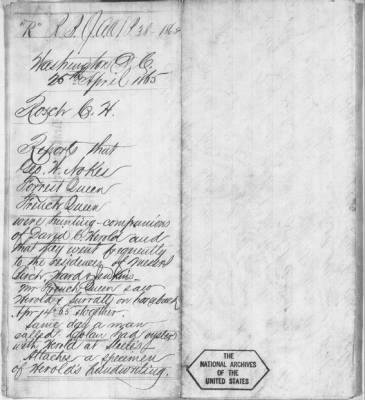 "R" R. S. 1865
Washington D. C.
25th April 1865
Rosch C. H.
Reports that
Geo. W. Nokes
Forrest Queen
French Queen
were hunting-companions
of David C. Herold and
that they went frequently
to the residences of Messrs
Mr French Queen saw
Herold & Surratt on horseback
Apr 14 '65 together.
Same day a man
called had oysters
with Herold at
Attaches a specimen
of Herold's handwriting.
THE
NATIONAL ARCHIVES
OF THE
UNITED STATES